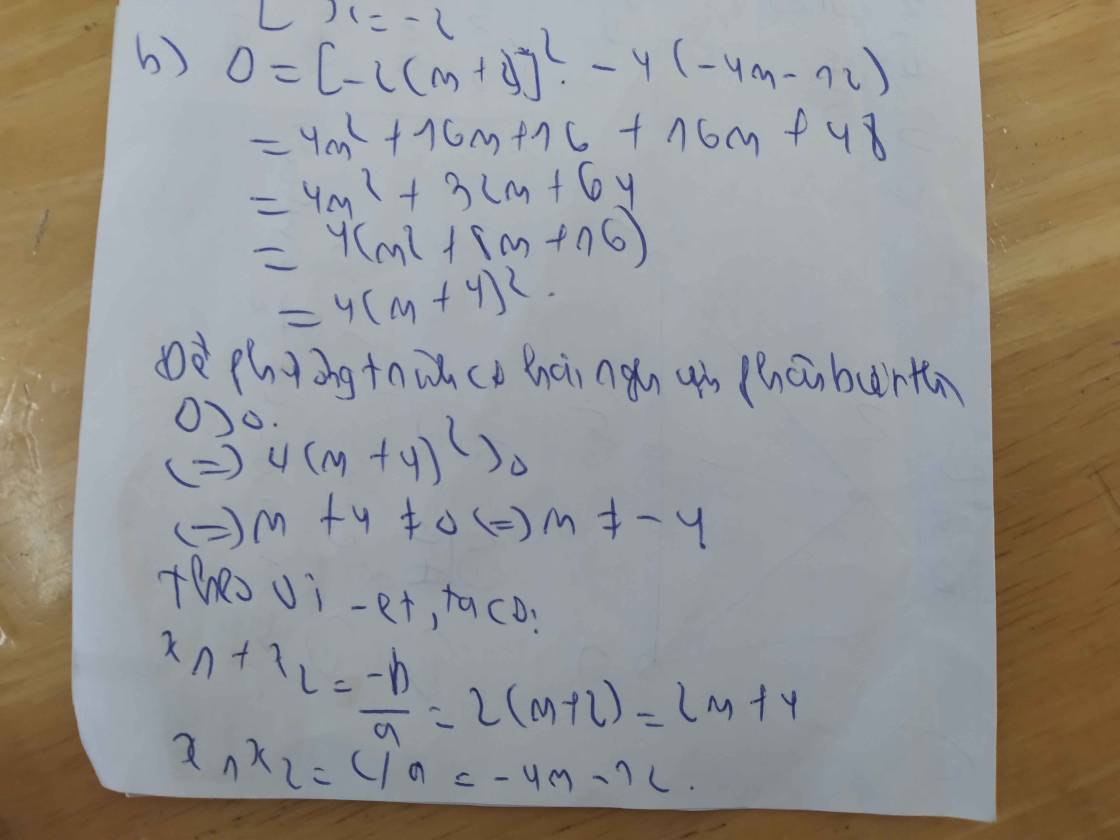 [ x = -2
b) Δ = [-2(m+2)]². - 4(-4m-12)
= 4m² + 16m + 16 + 16m + 48
= 4m² + 32m + 64
= 4(m² + 8m + 16)
= 4(m + 4)².
Để phương trình có hai nghiệm phân biệt thì
Δ > 0.
(=) 4(m + 4)² > 0
(=) m + 4 ≠ 0 (=) m ≠ -4
theo vi-et, ta có:
x₁ + x₂ = -b/a = 2(m+2) = 2m + 4
x₁x₂ = c/a = -4m - 12.